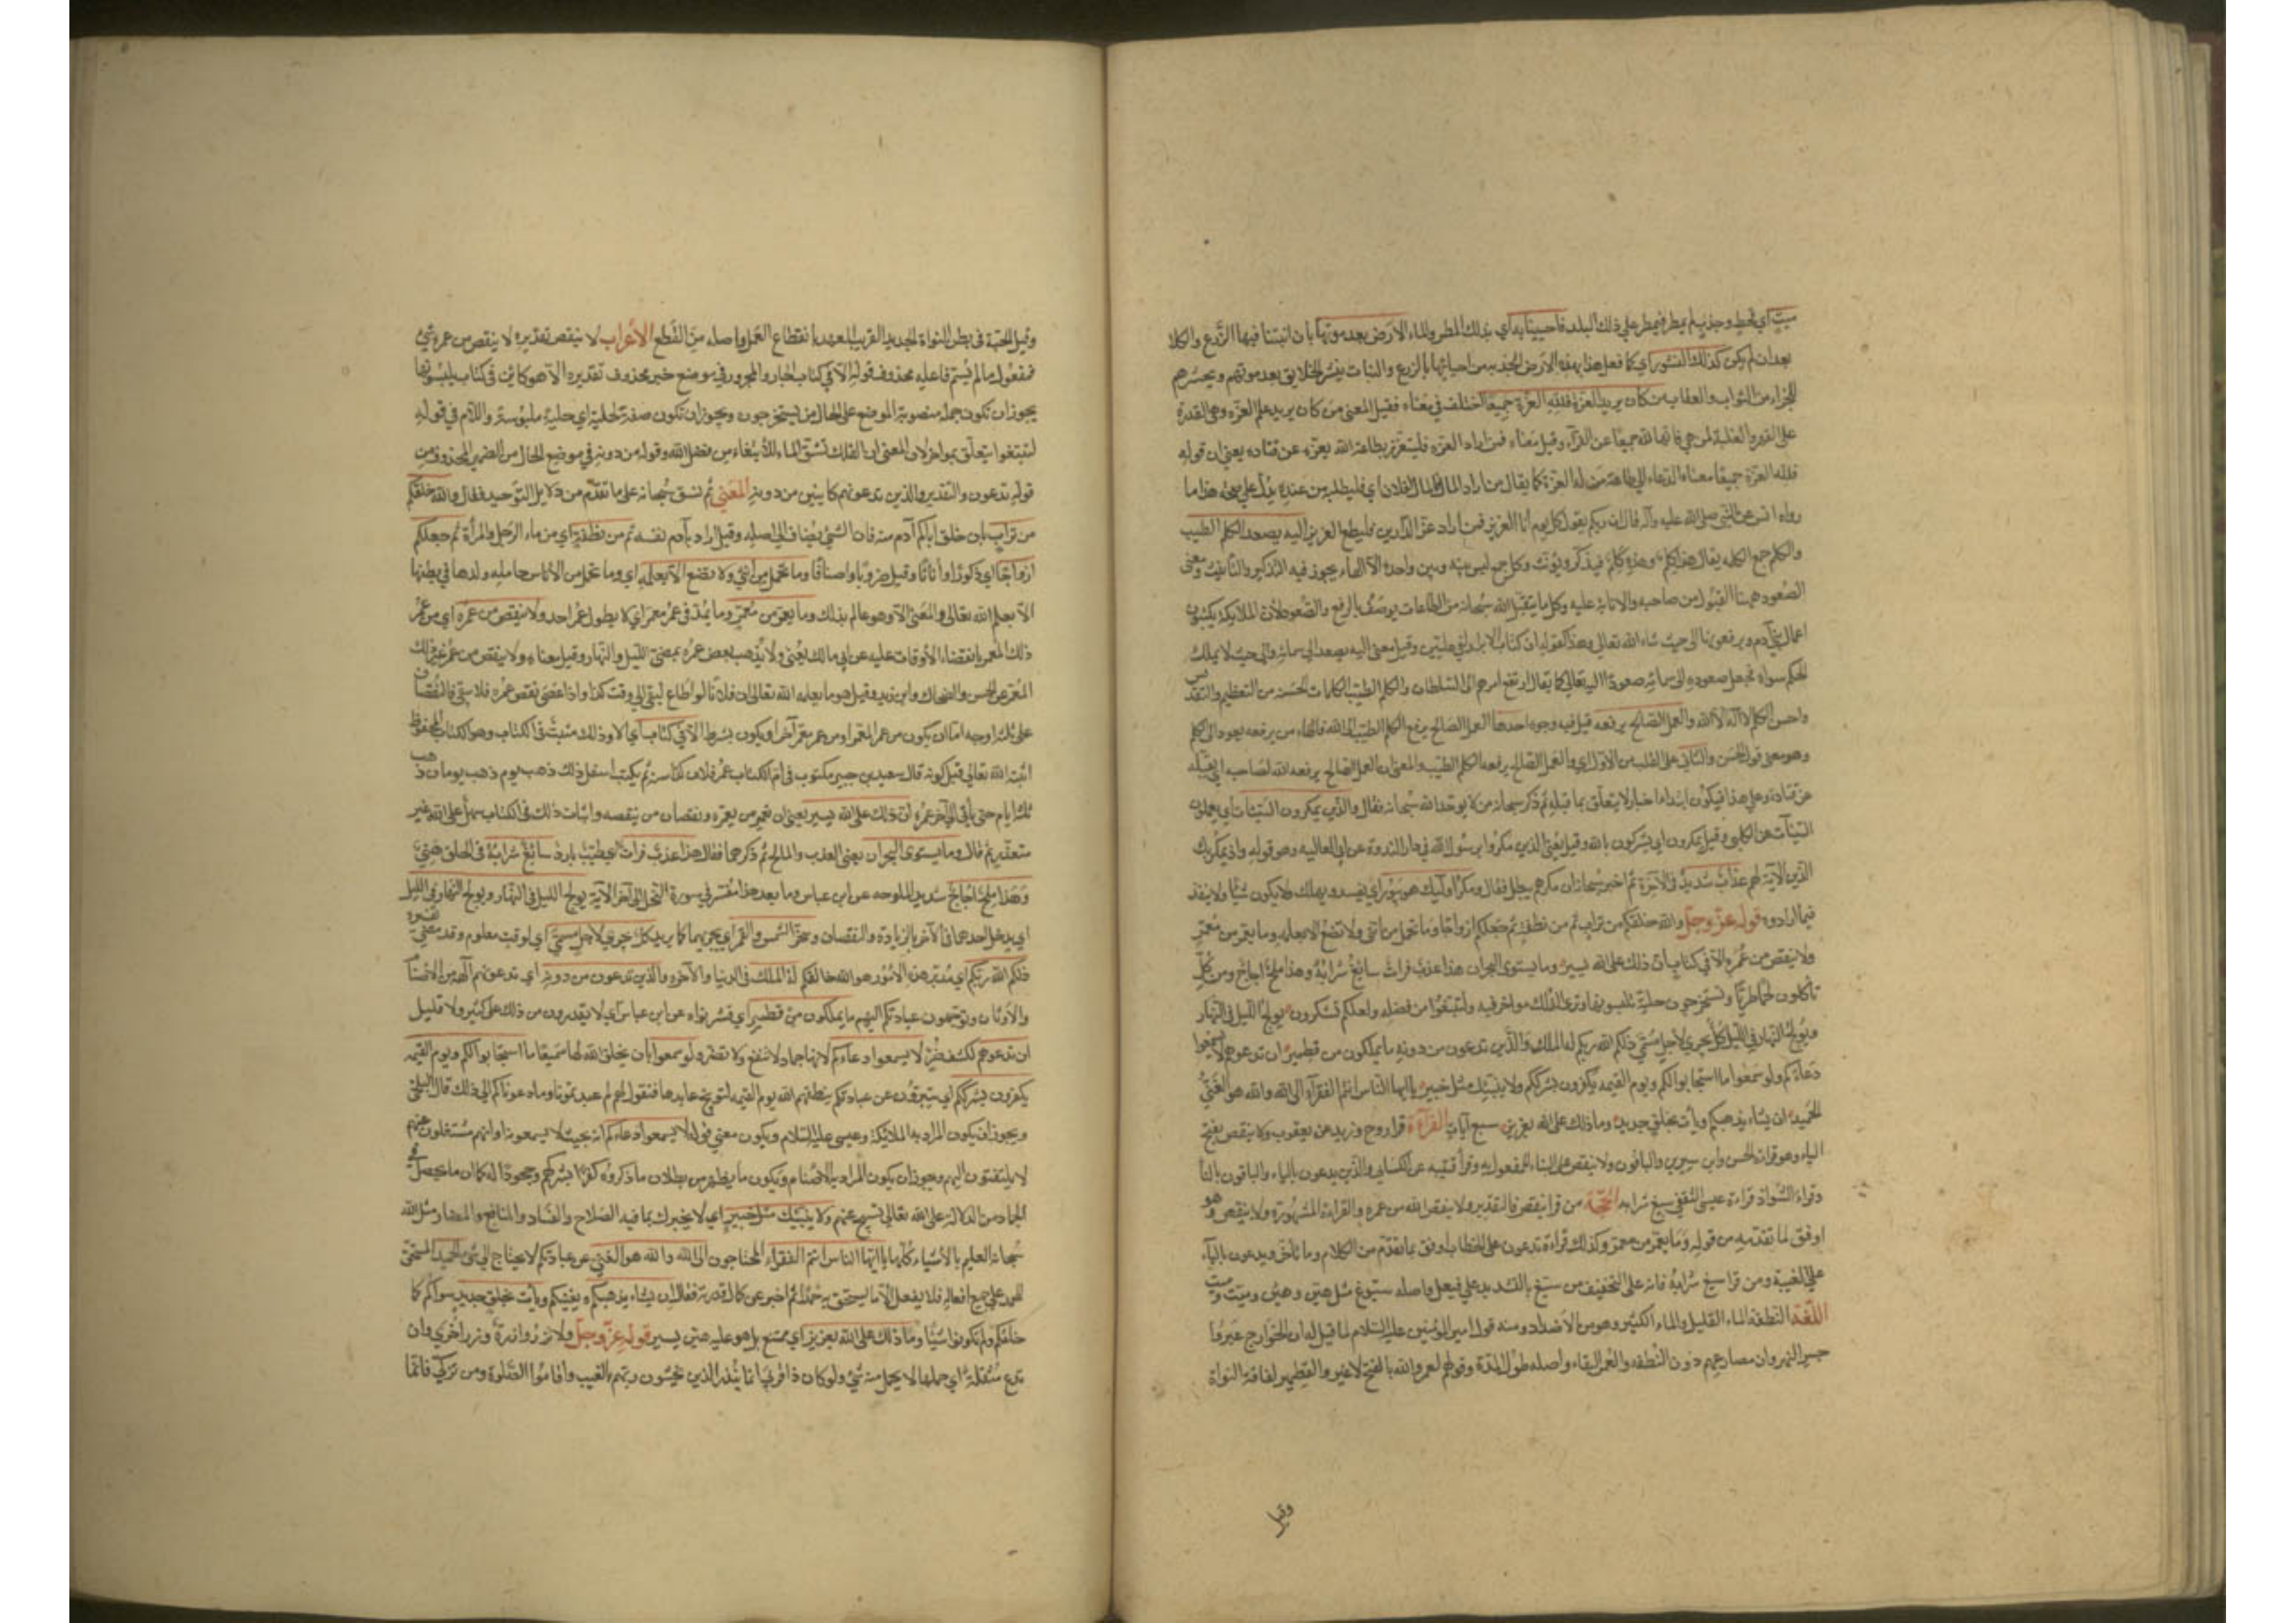 ميّت اي قحط وجدب لم يمطر فيمطر علي ذلك البلد فاحيينا به اي بذلك المطر والماء الارض بعد موتها بان انبتنا فيها الزّرع والكلا
بعد ان لم يكن كذلك النشور اي كما فعل هذا بهذه الارض الجدبه من احيائها بالزرع والنبات ينشر الخلايق بعد موتهم ويحشرهم
للجزاء من الثواب والعقاب من كان يريد العزة فللّه العزّة جميعًا اختلف في معناه فقيل المعني من كان يريد علم العزّه وهي القدرة
علي القهر والغلبة لمن هي فانها لله جميعًا عن الفرّآء وقيل معناه من اراد العزه فليتعزّز بطاعة الله يعزّه عن قتاده يعني ان قوله
فلله العزّة جميعًا معناه الدعاء الي طاعة من له العزة كما يقال من اراد المال فالمال لفلان اي فليطلبه من عنده يدلّ علي صحّه هذا ما
رواه انس عن النّبي صلي الله عليه وآله قال ان ربكم يقول كل يوم أنا العزيز فمن اراد عزّ الدّارين فليطع العزيز اليه يصعد الكلم الطيب
والكلم جمع الكلمه يقال هذا كلم وهذه كلم فيذكّر ويؤنّث وكل جمع ليس بينه وبين واحده الّا الهاء يجوز فيه التذكير والتأنيث ومعنى
الصّعود ههنا القبول من صاحبه والاثابة عليه وكل ما يتقبّل الله سبحانه من الطاعات يوصف بالرفع والصّعود لأنّ الملايكة يكتبون
اعمال بني آدم ويرفعونها الي حيث شاء الله تعالي وهذا كقوله ان كتاب الابرار لفي عليّين وقيل معني اليه يصعد الي سمائه والي حيث لا يملك
الحكم سواه فجعل صعوده الي سمائه صعودًا اليه تعالي كما يقال ارتفع امرهم الي السّلطان والكلم الطيّب الكلمات الحسنة من التعظيم والتقديس
واحسن الكلم لا اله الّا الله والعمل الصّالح يرفعه قيل فيه وجوه احدها العمل الصّالح يرفع الكلم الطيّب الي الله فالهاء من يرفعه يعود الي الكلم
وهو معني قول الحسن والثّاني علي القلب من الأوّل اي والعمل الصّالح يرفعه الكلم الطيّب والمعنى ان العمل الصالح يرفعه الله لصاحبه اي يقبله
عن قتادة وعلي هذا فيكون ابتداء اخبار لا يتعلّق بما قبله ثم ذكر سبحانه من لا يوحّد الله سبحانه فقال والذين يمكرون السّيئات اي يعملون
السّيّآت عن الكلبي وقيل يمكرون اي يشركون بالله وقيل يعني الذين مكروا برسول الله في دار النّدوة عن ابي العاليه وهو قوله واذ يمكر بك
الذين الآية لهم عذاب شديد في الآخرة ثم اخبر سبحانه ان مكرهم يبطل فقال ومكر اولئك هو يبور اي يفسد ويهلك ولا يكون شيئًا ولا ينفذ
فيما ارادوه قوله عزّ وجلّ والله خلقكم من تراب ثم من نطفة ثم جعلكم ازواجًا وما تحمل من انثى ولا تضع الا بعلمه وما يعمر من معمّر
ولا ينقص من عمره الّا في كتاب انّ ذلك علي الله يسير وما يستوى البحران هذا عذب فرات سائغ شرابه وهذا ملح اجاج ومن كلّ
تأكلون لحما طريًّا وتستخرجون حلية تلبسونها وترى الفلك مواخر فيه ولتبتغوا من فضله ولعلكم تشكرون يولج الليل في النّهار
ويولج النّهار في الليل كل يجري لأجل مسمّي ذلكم الله ربكم له الملك والّذين تدعون من دونه ما يملكون من قطمير ان تدعوهم لا يسمعوا
دعاءكم ولو سمعوا ما استجابوا لكم ويوم القيمه يكفرون بشرككم ولا ينبّئك مثل خبير يا ايها النّاس انتم الفقرآء الى الله والله هو الغنيّ
الحميد ان يشاء يذهبكم ويأت بخلق جديد وما ذلك علي الله بعزيز سبع آيات القرآءة قرا روح وزيد عن يعقوب ولا ينقص بفتح
الياء وهو قراءة الحسن وابن سيرين والباقون ولا ينقص علي البناء للمفعول به وقرأ قتيبه عن الكسائي والذين يدعون بالياء والباقون بالتّا
وفي الشّواذ قراءة عيسى الثقفي سيغ شرابه الحجّة من قرا ينقص فالتقدير ولا ينقص الله من عمره والقراءة المشهورة ولا ينقص وهو
اوفق لما تقدّمه من قوله وما يعمّر من معمّر وكذلك قراءة تدعون علي الخطاب اوفق بما تقدّم من الكلام وما تأخّر ويدعون بالياء
علي الغيبة ومن قرا سيغ شرابه فانه علي التخفيف من سيّغ بالتشديد علي فيعل واصله سيوغ مثل هيّن وهين وميّت وميت
اللّغة النّطفة الماء القليل والماء الكثير وهو من الأضداد ومنه قول امير المؤمنين عليه السّلام لما قيل له ان الخوارج عبروا
جسر النهروان مصارعهم دون النّطفه والعمر البقاء واصله طول المدّة وقولهم لعمر الله بالفتح لا غير والقطمير لفافة النواة
وقيل
وقيل الحبّة في بطن النواة الجديد القريب العهد بانقطاع العمل واصله من القطع الأعراب لا ينقص تقديره لا ينقص من عمره شيٌ
فمفعول ما لم يسمّ فاعله محذوف قوله الّا في كتاب الجار والمجرور في موضع خبر محذوف تقديره الّا هو كائن في كتاب يلبسونها
يجوز ان تكون جملة منصوبة الموضع علي الحال من يستخرجون ويجوز ان تكون صفة لحلية اي حلية ملبوسة واللّام في قوله
لتبتغوا يتعلّق بمواخر لان المعنى ان الفلك تشق الماء للأبتغاء من فضل الله وقوله من دونه في موضع الحال من الضمير المحذوف من
قوله تدعون والتقدير والذين تدعونهم كاينين من دونه المعني ثم نسق سبحانه علي ما تقدّم من دلايل التّوحيد فقال والله خلقكم
من تراب بان خلق اباكم آدم منه فان الشيئ يضاف الي اصله وقيل اراد به آدم نفسه ثم من نطفة اي من ماء الرّجل والمرأة ثم جعلكم
ازواجًا اي ذكورًا واناثًا وقيل ضروبًا واصنافًا وما تحمل من انثي ولا تضع الّا بعلمه اي وما تحمل من الأناس حامله ولدها في بطنها
الّا بعلم الله تعالى والمعنى الّا وهو عالم بذلك وما يعمّر من معمّر وما يمدّ في عمر معمّر اي لا يطول عمر احد ولا ينقص من عمره اي من عمر
ذلك المعمر بانقضاء الأوقات عليه عن ابي مالك يعني ولا يذهب بعض عمره بمضيّ الليل والنّهار وقيل معناه ولا ينقص من عمر غير ذلك
المعمّر عن الحسن والضحاك وابن زيد وقيل هو ما يعلمه الله تعالى ان فلانًا لو اطاع لبقي الي وقت كذا واذا عصى نقص عمره فلا يبقي فالنّقصان
على ثلثة اوجه امّا ان يكون من عمر المعمّر او من عمر معمّر آخر او يكون بشرط الّا في كتاب اي الّا وذلك مثبت في الكتاب وهو الكتاب المحفوظ
اثبته الله تعالي قبل كونه قال سعيد بن جبير مكتوب في ام الكتاب عمر فلان كذا سنة ثم يكتب اسفل ذلك ذهب يوم ذهب يومان ذهب
ثلثة ايام حتى يأتي الي آخر عمره انّ ذلك علي الله يسير يعني ان تعمير من يعمّره ونقصان من ينقصه واثبات ذلك في الكتاب سهل علي الله غير
متعذّر ثم قال وما يستوى البحران يعني العذب والمالح ثم ذكرهما فقال هذا عذب فرات اي طيّب بارد سائغ شرابه في الحلق هنيٌ
وهذا ملح اجاج شديد الملوحه عن ابن عباس وما بعد هذا مفسّر في سورة النّحل الي آخر الآية يولج الليل في النّهار ويولج النّهار في الليل
اي يدخل احدهما في الآخر بالزيادة والنقصان وسخّر الشّمس والقمر اي يجريهما كما يريد كل يجري لأجل مسمّى اي لوقت معلوم وقد مضي تفسيره
ذلكم الله ربكم اي مدبّر هذه الأمور هو الله خالقكم له الملك في الدنيا والآخره والذين تدعون من دونه اي تدعونهم آلهة من الأصنام
والأوثان وتوجّهون عبادتكم اليهم ما يملكون من قطمير اي قشر نواه عن ابن عباس اي لا يقدرون من ذلك علي كثير ولا قليل
ان تدعوهم لكشف ضرّ لا يسمعوا دعاءكم لانها جماد لا تنفع ولا تضرّ ولو سمعوا بأن يخلق الله لها سمعًا ما استجابوا لكم ويوم القيمه
يكفرون بشرككم اي يتبرّؤن عن عبادتكم ينطقهم الله يوم القيمه لتوبيخ عابديها فتقول لهم لم عبدتمونا وما دعوناكم الي ذلك قال البلخي
ويجوز ان يكون المراد به الملائكة وعيسى عليه السّلام ويكون معنى قوله لا يسمعوا دعاءكم انهم بحيث لا يسمعونه او انهم مشتغلون عنهم
لا يلتفتون اليهم ويجوز ان يكون المراد به الأصنام ويكون ما يظهر من بطلان ما ذكروه كفرًا بشركهم وجحودًا له كما ان ما يحصل في
الجماد من الدلالة علي الله تعالى تسبيح منهم ولا ينبّئك مثل خبير اي لا يخبرك بما فيه الصّلاح والفساد والمنافع والمضار مثل الله
سبحانه العليم بالأشياء كلّها يا ايّها الناس انتم الفقراء المحتاجون الي الله والله هو الغني عن عبادتكم لا يحتاج الي شئ الحميد المستحق
للحمد علي جميع افعاله فلا يفعل الّا ما يستحق به حمدًا ثم اخبر عن كمال قدرته فقال ان يشاء يذهبكم ويفنيكم ويأت بخلق جديد سواكم كما
خلقكم ولم تكونوا شيئًا وما ذلك علي الله بعزيز اي ممتنع بل هو عليه هيّن يسير قوله عزّ وجلّ ولا تزر وازرة وزر اخري وان
تدع مثقلة اي حملها لا يحمل منه شئ ولو كان ذا قربى انما تنذر الذين يخشون ربهم بالغيب واقاموا الصّلوة ومن تزكّي فانّما